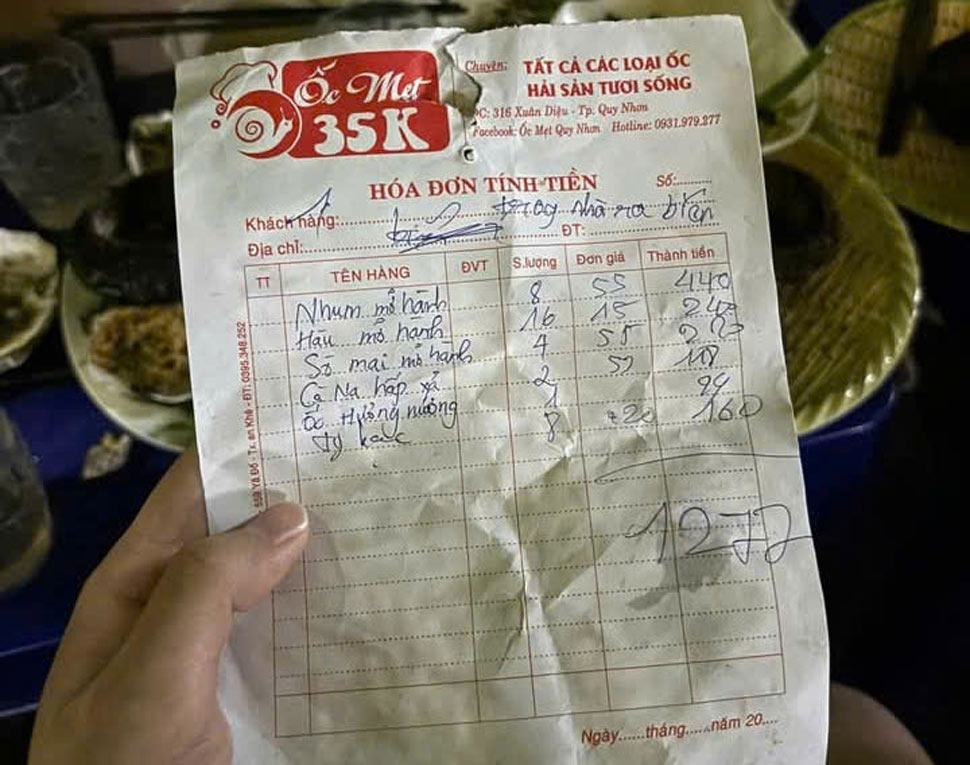 Ốc Mẹt
35K
Chuyên: TẤT CẢ CÁC LOẠI ỐC
HẢI SẢN TƯƠI SỐNG
ĐC: 316 Xuân Diệu - Tp. Quy Nhơn
Facebook: Ốc Mẹt Quy Nhơn Hotline: 0931.979.277
HÓA ĐƠN TÍNH TIỀN Số:..........
Khách hàng: trog nhà ra biển
Địa chỉ: ĐT:
TT TÊN HÀNG ĐVT S.lượng Đơn giá Thành tiền
Nhum mỡ hành 8 55 440
Hàu mỡ hành 16 15 240
Sò mai mỡ hành 4 55
Cà Na hấp xả 2
Ốc Hương nướng 1 99
8 20 160
1277
Yã Đố - Tx. an Khê - ĐT: 0395.348.252
Ngày......tháng......năm 20....